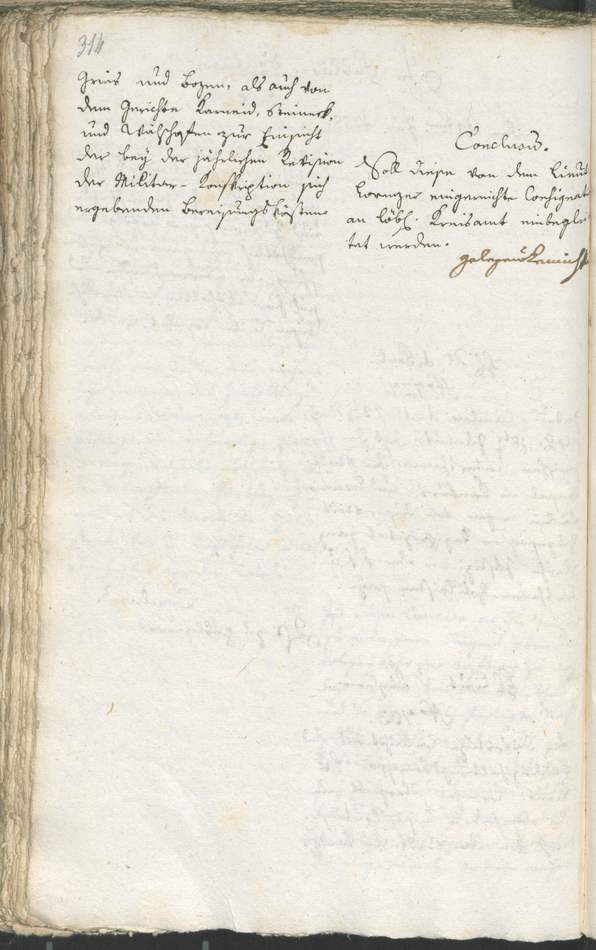 314
Gries und Bozen, als auch von
dem Gerichte Karneid, Steineck,
und Wälschnofen zur Einsicht
der bey der jährlichen Revision
der Militar-Konskription sich
ergebenden Bereisungskösten
Conclusum.
Soll diese von dem Lieut
Lorenzer eingereichte Consignat
an löbl. Kreisamt einbeglei
tet werden.